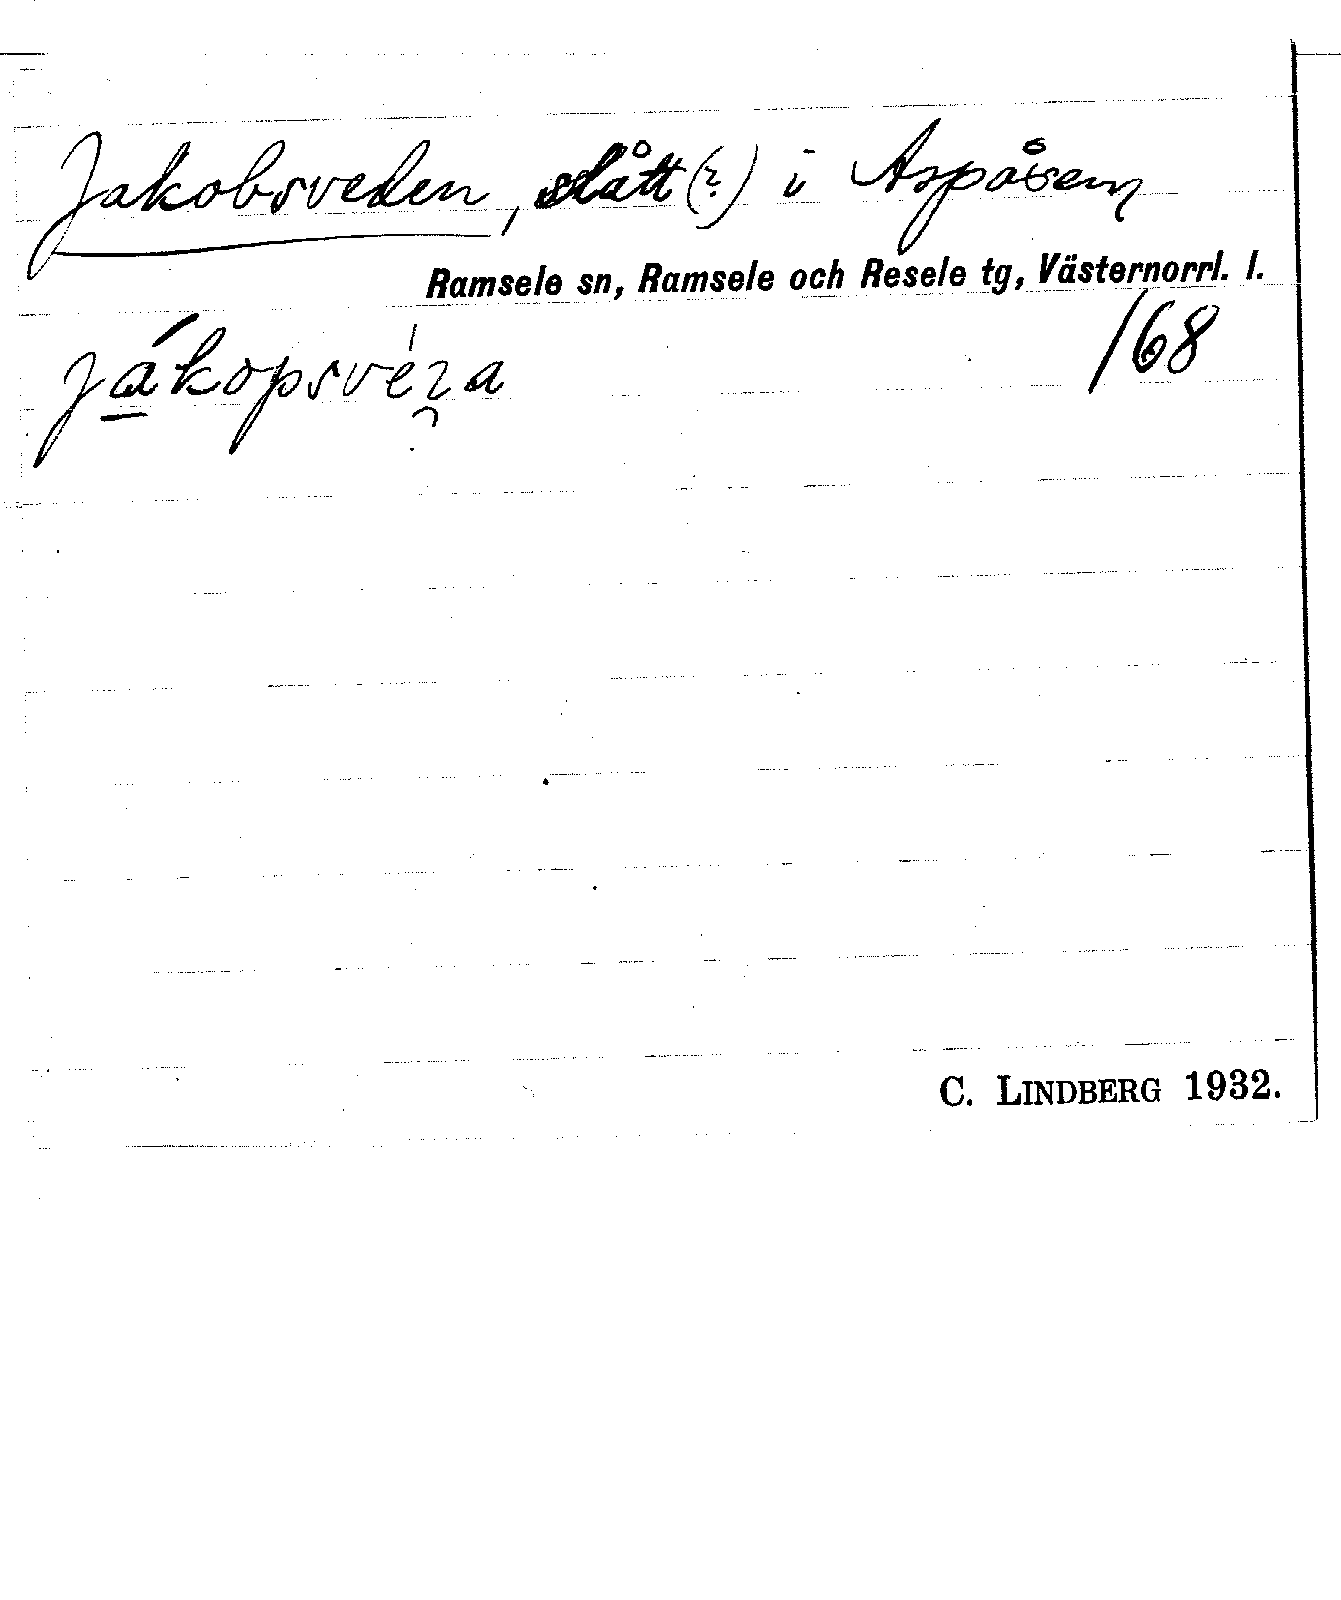 Jakobsveden, slått (?) i Aspåsen
Ramsele sn, Ramsele och Resele tg, Västernorrl. l.
/68
C. LINDBERG 1932.